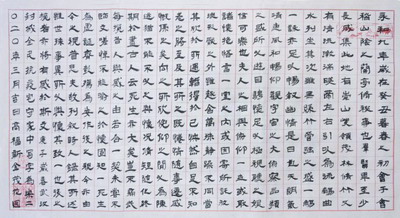 永和九年歲在癸丑暮春之初會于會
稽山陰之蘭亭脩稧事也羣賢畢至少
長咸集此地有崇山峻領茂林脩竹又
有清流激湍暎帶左右引以為流觴曲
水列坐其次雖無絲竹管弦之盛一觴
一詠亦足以暢叙幽情是日也天朗氣
清惠風和暢仰觀宇宙之大俯察品類
之盛所以遊目騁懷足以極視聽之娛
信可樂也夫人之相與俯仰一世或取
諸懷抱悟言一室之內或因寄所託放
浪形骸之外雖趣舍萬殊靜躁不同當
其欣於所遇暫得於己快然自足不知
老之將至及其所之既惓情隨事遷感
慨係之矣向之所欣俛仰之間以為陳
迹猶不能不以之興懷況脩短隨化終
期於盡古人云死生亦大矣豈不痛哉
每攬昔人興感之由若合一契未嘗不
臨文嗟悼不能喻之於懷固知一死生
為虛誕齊彭殤為妄作後之視今亦由
今之視昔悲夫故列叙時人錄其所述
雖世殊事異所以興懷其致一也後之
攬者亦將有感於斯文
抗疫守家中寫字
二〇二〇年三月吉日高福新金茂花園